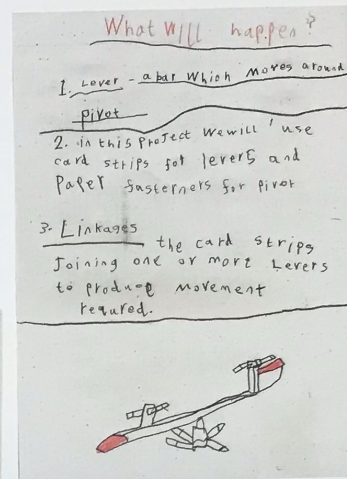 What will happen?
1. Lever - a bar which moves around
pivot
2. in this project we will use
card strips for levers and
Paper fasterners for pivot
3. Linkages
the card strips
Joining one or more Levers
to produce movement
requred.